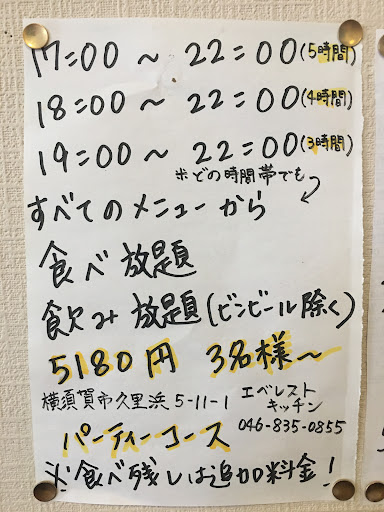 17:00 ~ 22:00(5時間)
18:00 ~ 22:00(4時間)
19:00 ~ 22:00(3時間)
※どの時間帯でも
すべてのメニューから
食べ放題
飲み放題(ビンビール除く)
5180円 3名様~
横須賀市久里浜5-11-1
エベレスト
キッチン
046-835-0855
パーティーコース
※食べ残しは追加料金!